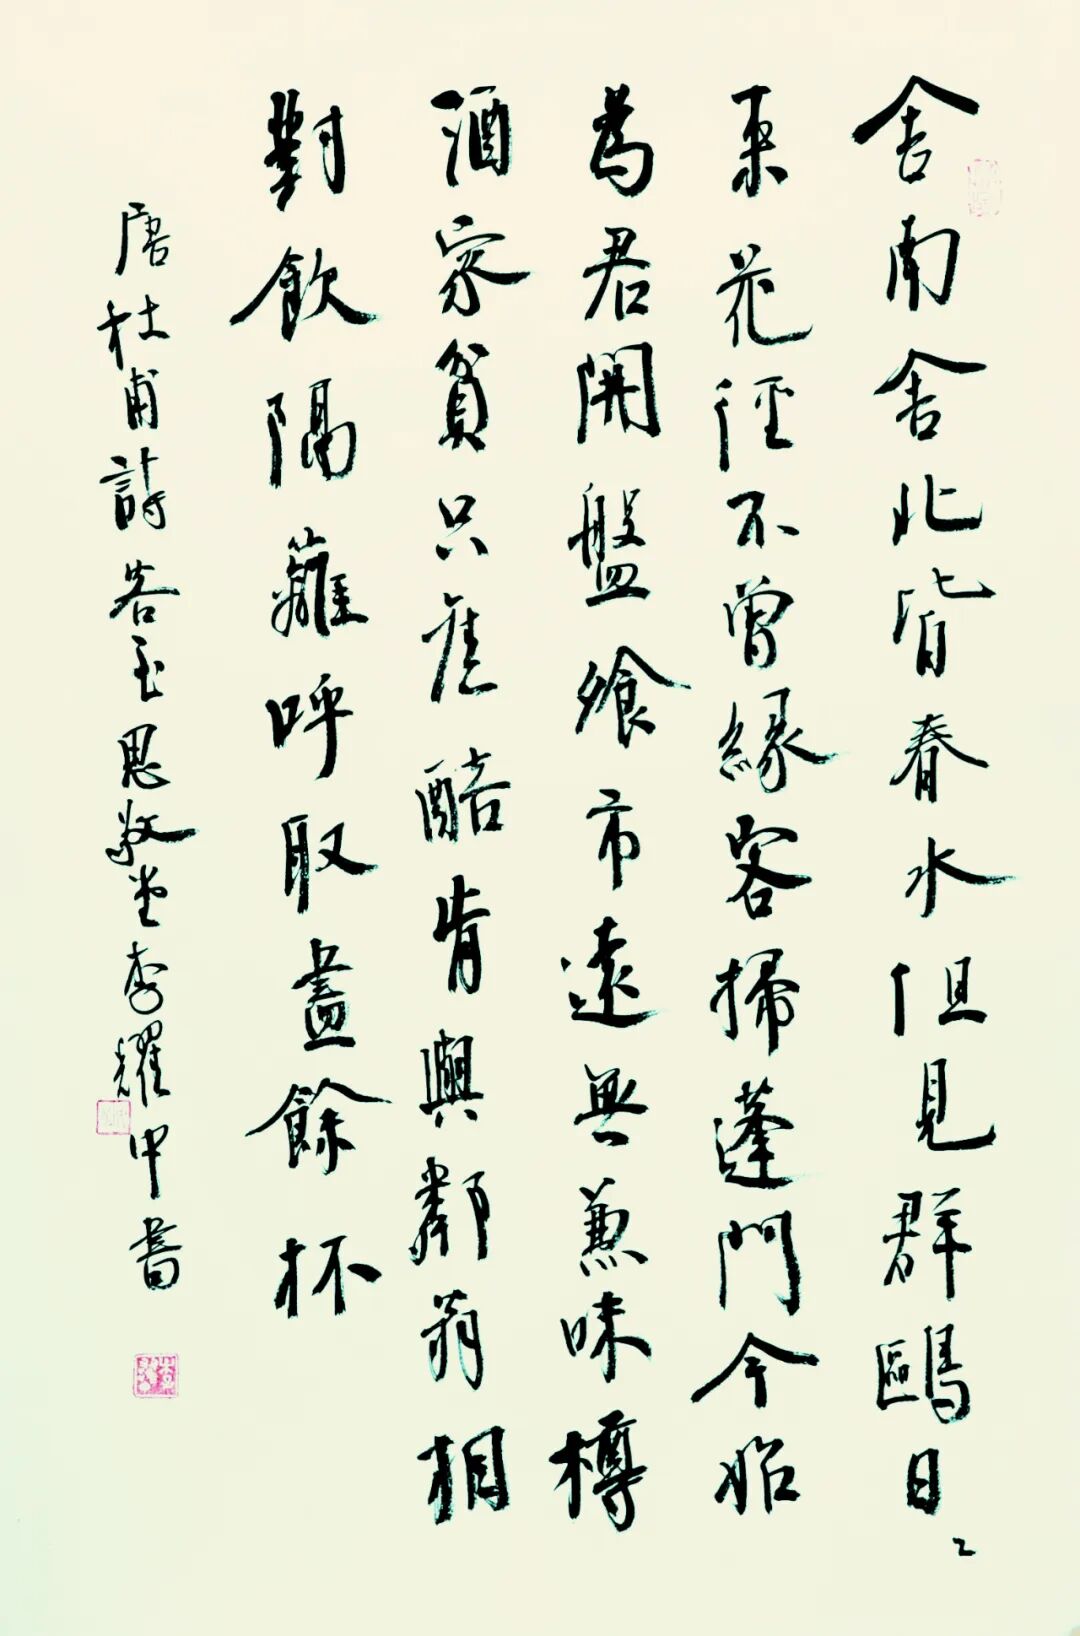 舍南舍北皆春水但見群鷗日〻
来花徑不曾緣客掃蓬門今始
為君開盤飧市遠無兼味樽
酒家貧只舊醅肯與鄰翁相
對飲隔籬呼取盡餘杯
唐杜甫詩客至思敬堂李耀中書